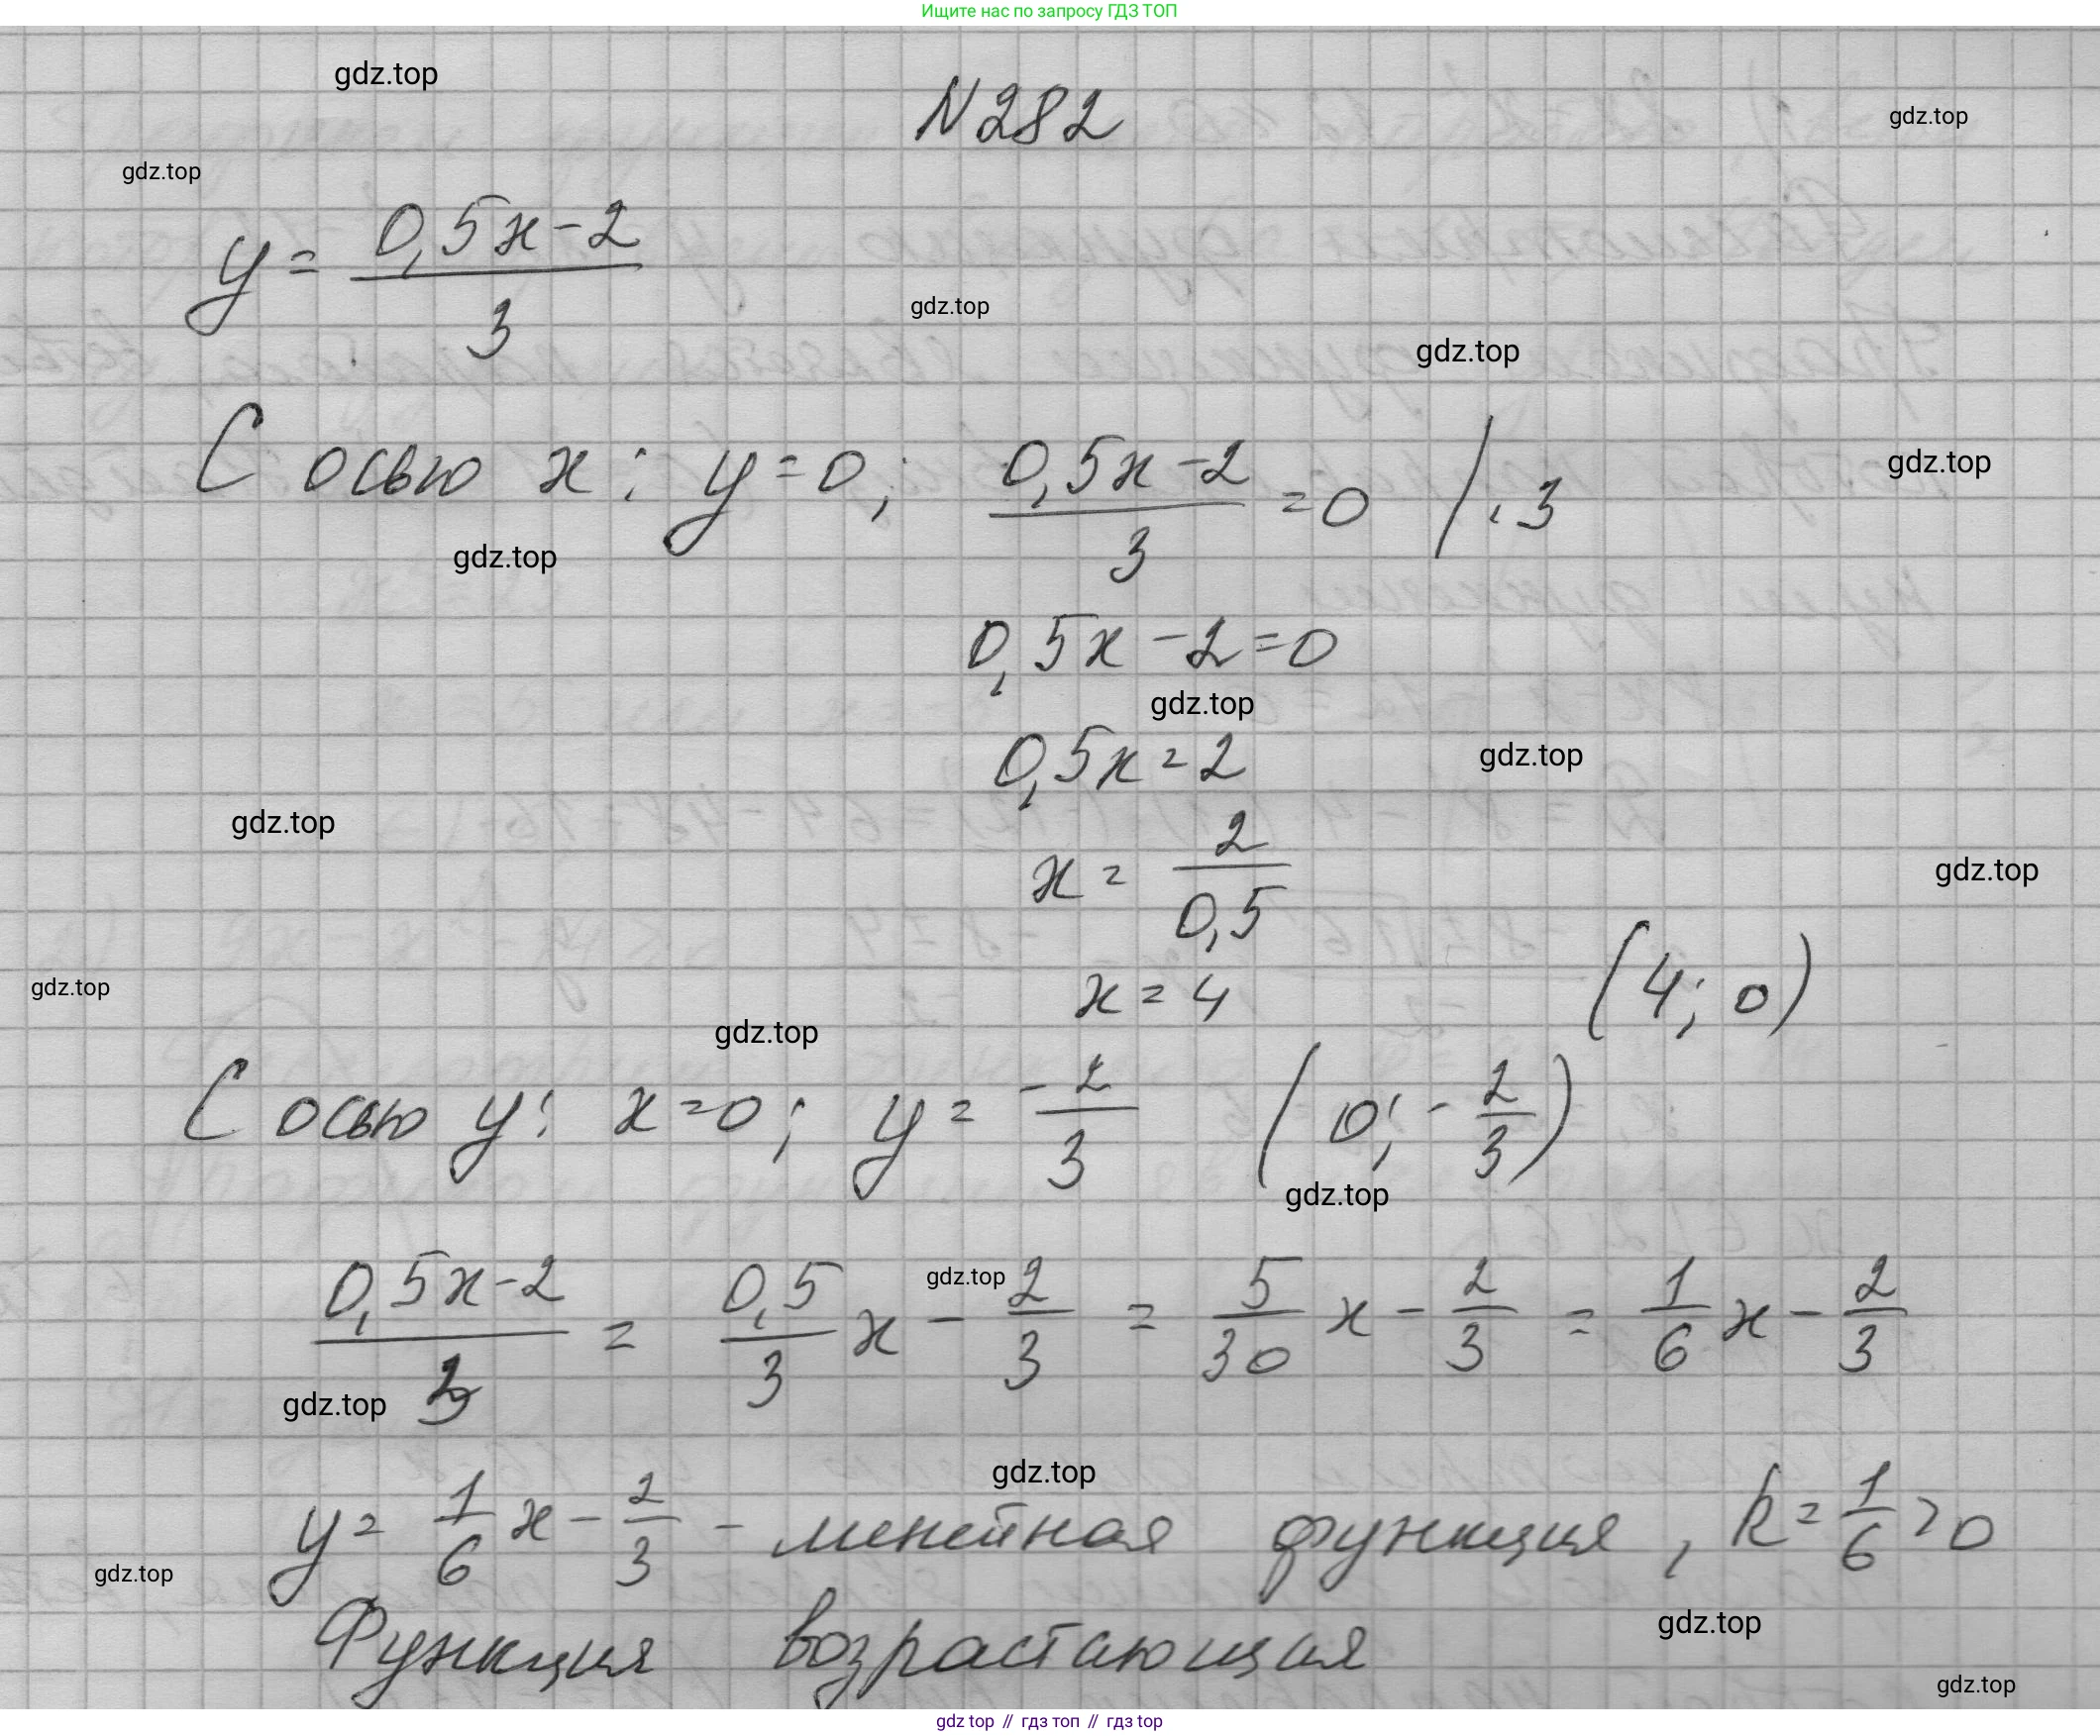 Ищите нас по запросу ГДЗ ТОП
gdz.top
N282
gdz.top
gdz.top
y = (0,5x - 2)/3
gdz.top
gdz.top
С осью x: y = 0; (0,5x - 2)/3 = 0 | · 3
gdz.top
gdz.top
0,5x - 2 = 0
gdz.top
0,5x = 2
gdz.top
gdz.top
x = 2/0,5
gdz.top
x = 4 (4; 0)
gdz.top
gdz.top
С осью y: x = 0; y = -2/3 (0; -2/3)
gdz.top
gdz.top
(0,5x - 2)/3 = 0,5/3 x - 2/3 = 5/30 x - 2/3 = 1/6 x - 2/3
gdz.top
gdz.top
y = 1/6 x - 2/3 - линейная функция, k = 1/6 > 0
gdz.top
Функция возрастающая
gdz.top
gdz.top
gdz top // гдз топ // гдз top